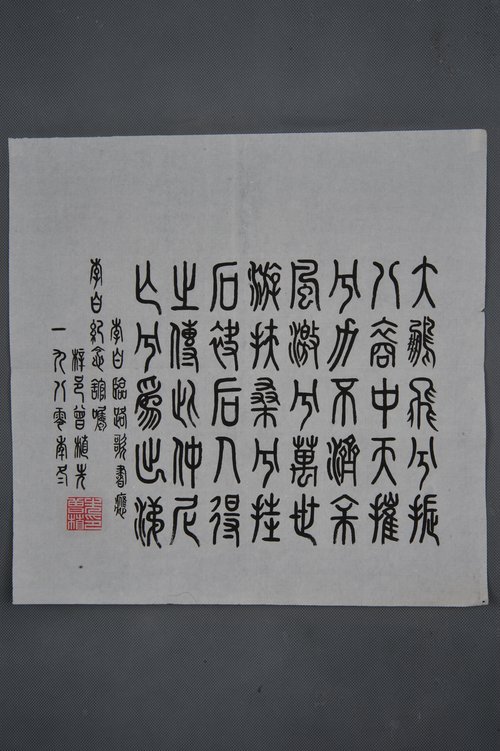 大鵬飛兮振
八裔中天摧
兮力不濟余
風激兮萬世
游扶桑兮挂
石袂后人得
之傳此仲尼
亡兮爲出涕
李白臨路歌書應
李白紀念館囑
梓邑曾植
一九八零年冬